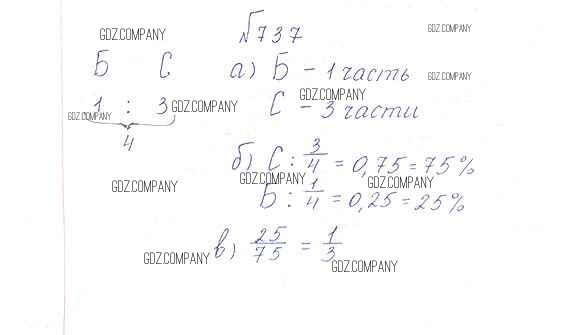 GDZ.COMPANY №737 GDZ.COMPANY
Б С а) Б - 1 часть GDZ.COMPANY
1 : 3 GDZ.COMPANY С - 3 части GDZ.COMPANY
GDZ.COMPANY
4
б) С: 3/4 = 0,75 = 75%
GDZ.COMPANY GDZ.COMPANY GDZ.COMPANY
Б: 1/4 = 0,25 = 25%
в) 25/75 = 1/3
GDZ.COMPANY GDZ.COMPANY